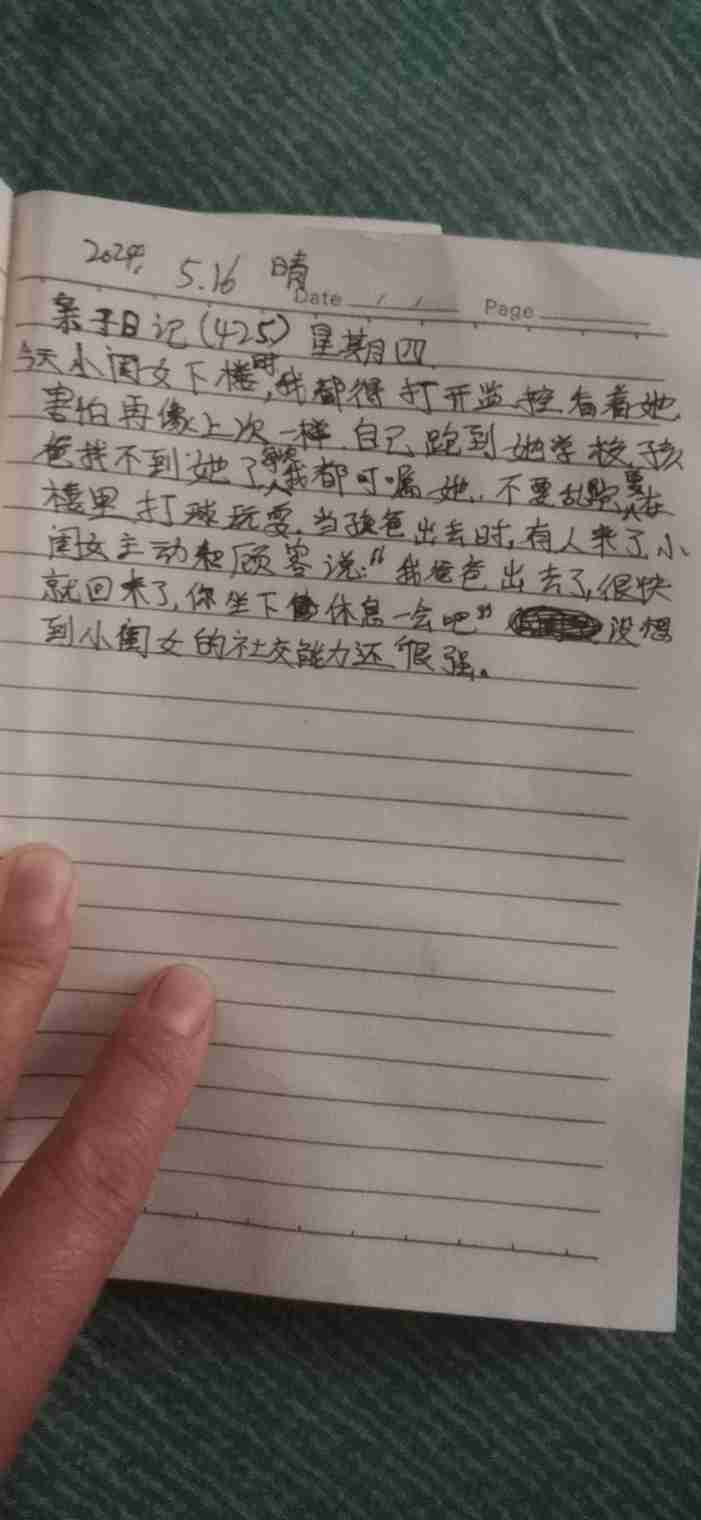 2024, 5.16 晴
Date / / Page
亲子日记(425) 星期四
今天小闺女下楼时,我都得打开监控看着她
害怕再像上次一样自己跑到她学校孩
爸找不到她了每次我都叮嘱她.不要乱跑要在
楼里打球玩耍.当孩爸出去时,有人来了小
闺女主动和顾客说:“我爸爸出去了,很快
就回来了,你坐下休息一会吧” 没想
到小闺女的社交能力还很强。